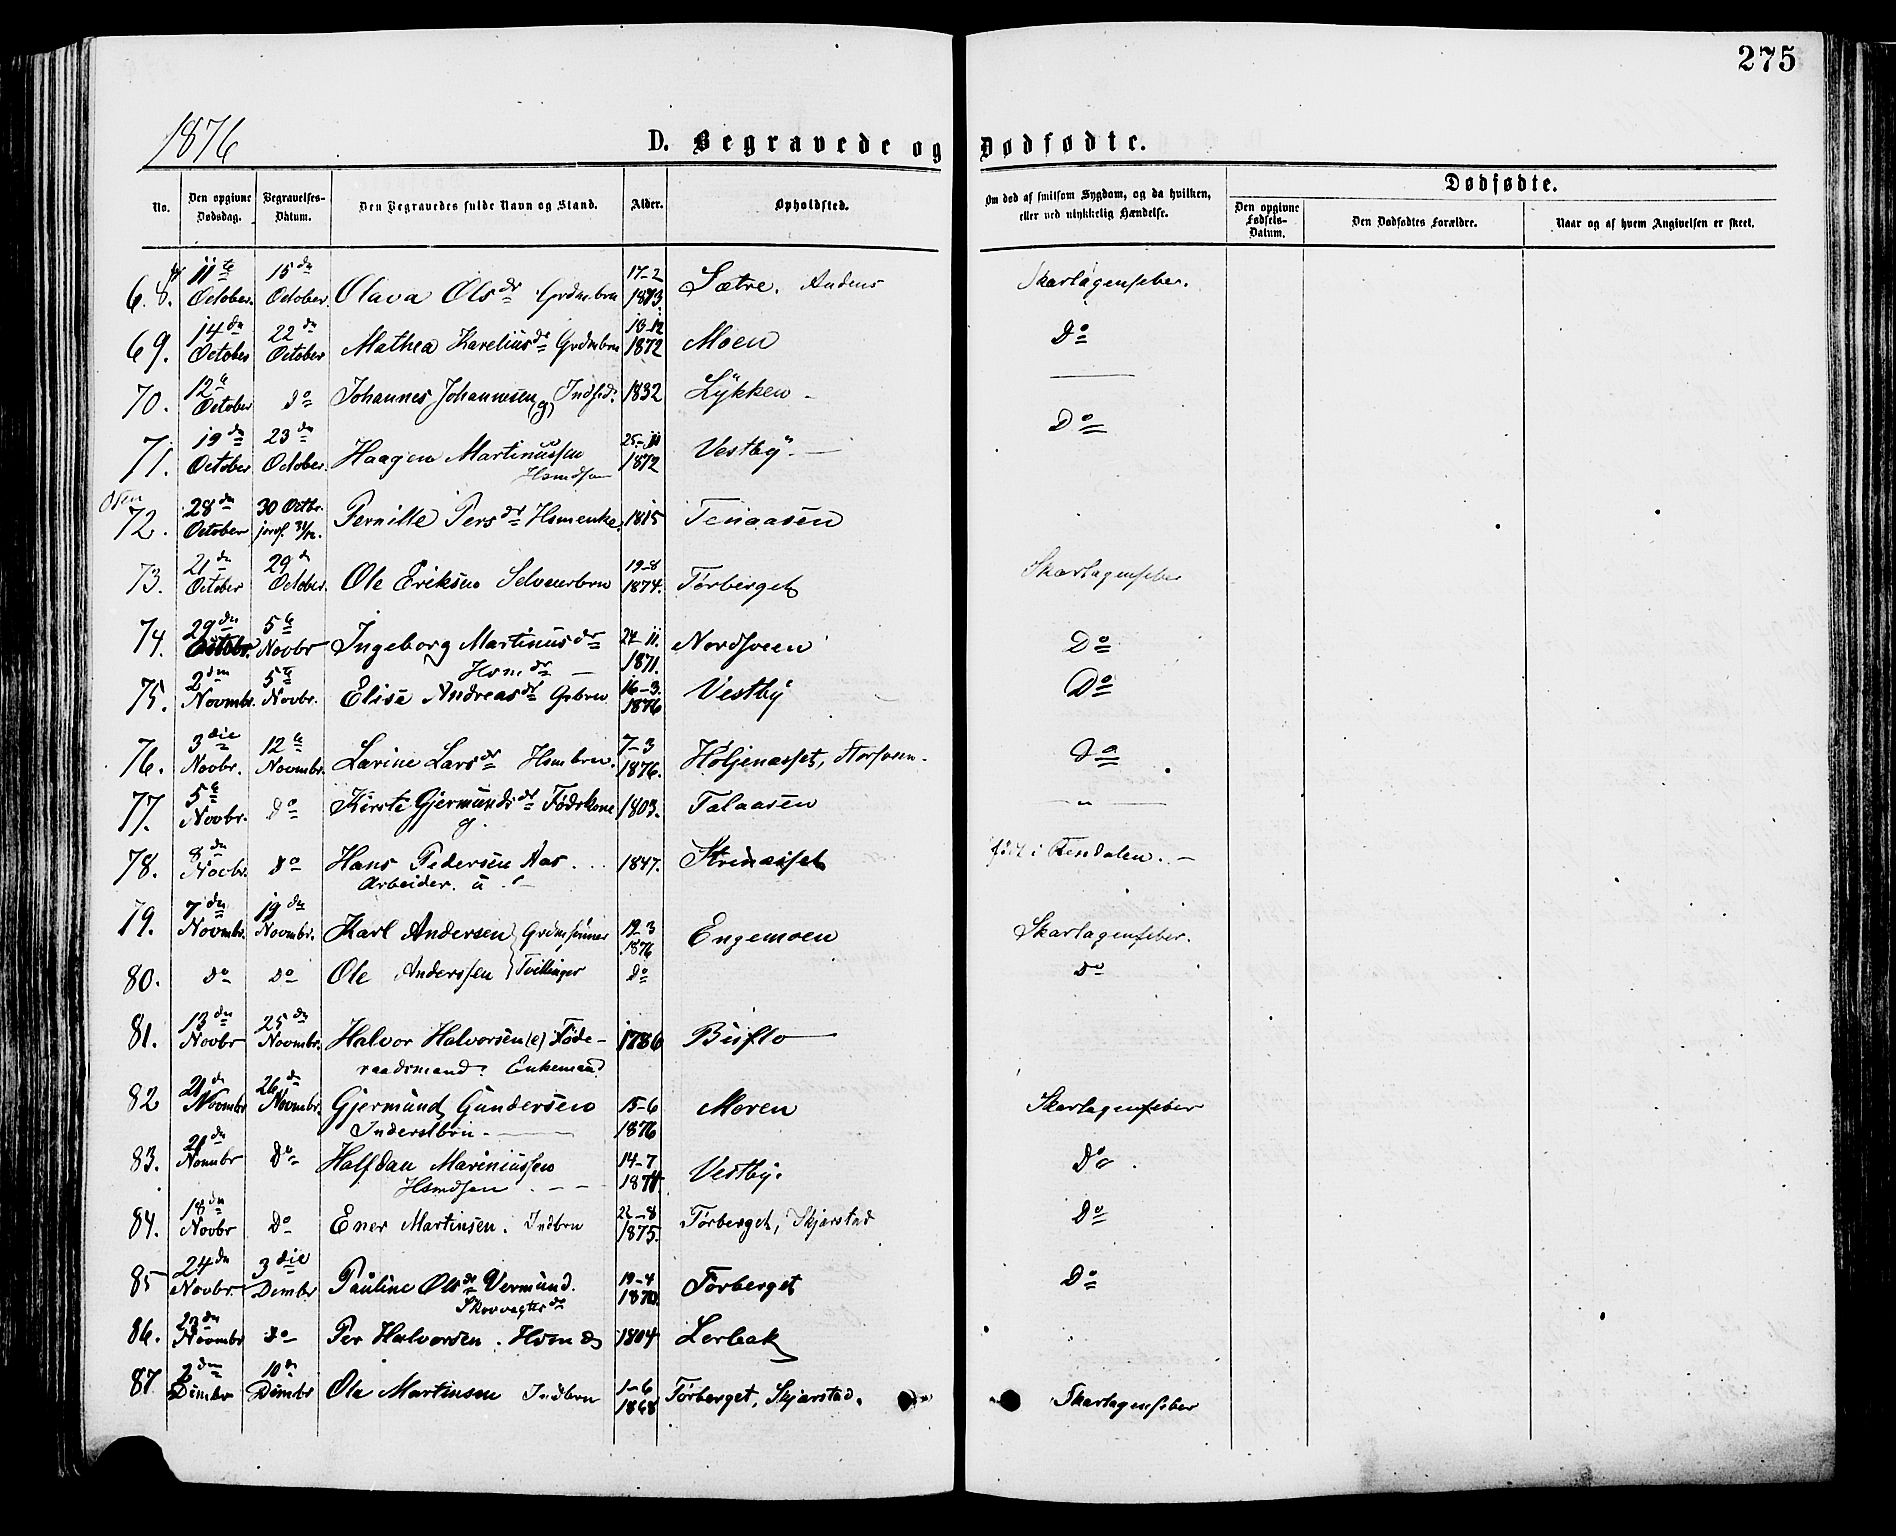 275
1876
D. Begravede og Dødfødte.
No. Den opgivne Dødsdag. Begravelses-Datum. Den Begravedes fulde Navn og Stand. Alder. Opholdsted. Om død af smitsom Sygdom, og da hvilken, eller ved ulykkelig Hændelse. Dødfødte.
Den opgivne Fødsels-Datum. Den Dødfødtes Forældre. Naar og af hvem Angivelsen er skeet.
68. 11te October. 15de October Olava Olsdr Grdmbrn 17-2 1873 Sætre. Skarlagensfeber.
69. 14de October 22de October Mathea Kareliusdr Grdmbrn 1872 Moen Do
70. 12te October Do Johannes Johannesen (g) Indsid. 1832 Lykken - ——
71. 19de October 23de October. Haagen Martinussen 25-11 1872 Vestby. — Do
Hsmdsøn
72. 28de October 30 Octbr. Pernille Persdr Hsmenke. 1815 Tenaasen
73. 21de October 29de October. Ole Eriksen Selveierbrn 19-8 1874. Tørberget Skarlagensfeber
74. 29de Octobr. 5te Novbr Ingeborg Martinusdr 24-11. 1871. Nordsveen Do
Hsmdr —
75. 2den Novmbr. 5te Novbr. Elise Andreasdr Gbrn 16-3. 1876 Vestby Do
76. 3die Novbr. 12te Novmbr. Larine Larsdr Hsmbrn. 7-3 1876. Høljenæsset, Storsveen. Do
77. 5te Novbr. Do Kirsti Gjermundsdr Fødskone 1803. Talaasen — " —
g.
78. 8de Novbr. Do Hans Pedersen Aas. 1847. Strenæsset født i Rendalen. -
Arbeider. u
79. 7de Novmbr. 19de Novmbr. Karl Andersen } Grdmsønner 19-3 1876 Engemoen Skarlagensfeber.
80. Do Do Ole Anderssen } Tvillinger Do Do
81. 13de Novbr 25de Novmbr. Halvor Halvorsen (e) Føde- 1786 Buflo
raadsmand. Enkemand
82 21de Novmbr 26de Novmbr. Gjermund Gundersen 15-6 1876 Moren Skarlagensfeber
Inderstbrn.
83. 21de Novmbr Do Halfdan Mariniussen 14-7 Vestby. Do.
Hsmdsøn
84. 18de Novbr Do Ener Martinsen. Indbrn 22-8 1875. Tørberget, Skjærstad Do
85 24de Novbr. 3die Dembr Pauline Olsdr Vermund. 19-4 1870. Tørberget Do
Skovvogterdr
86. Novmbr Do Per Halvorsen. Hsmd 1804 Lerbak
87 2den Dembr 10de Dembr Ole Martinsen Indbrn 1-6 1868 Tørberget, Skjærstad. Skarlagensfeber